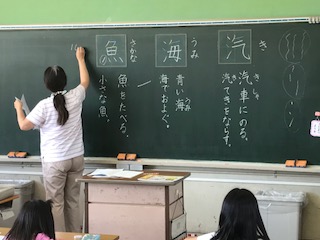 汽
き
汽車にのる。
きしゃ
汽てきをならす。
き
海
うみ
青い海
うみ
海でおよぐ。
魚
さかな
魚をたべる。
小さな魚。